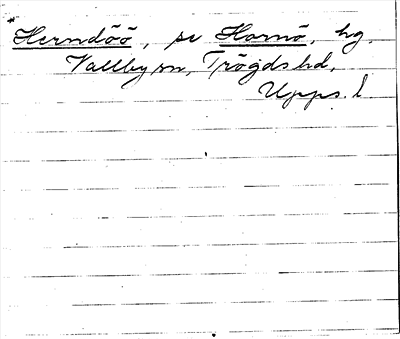 Herndöö, se Hornö, hg.
Vallby sn, Trögds hd,
Upps. l.